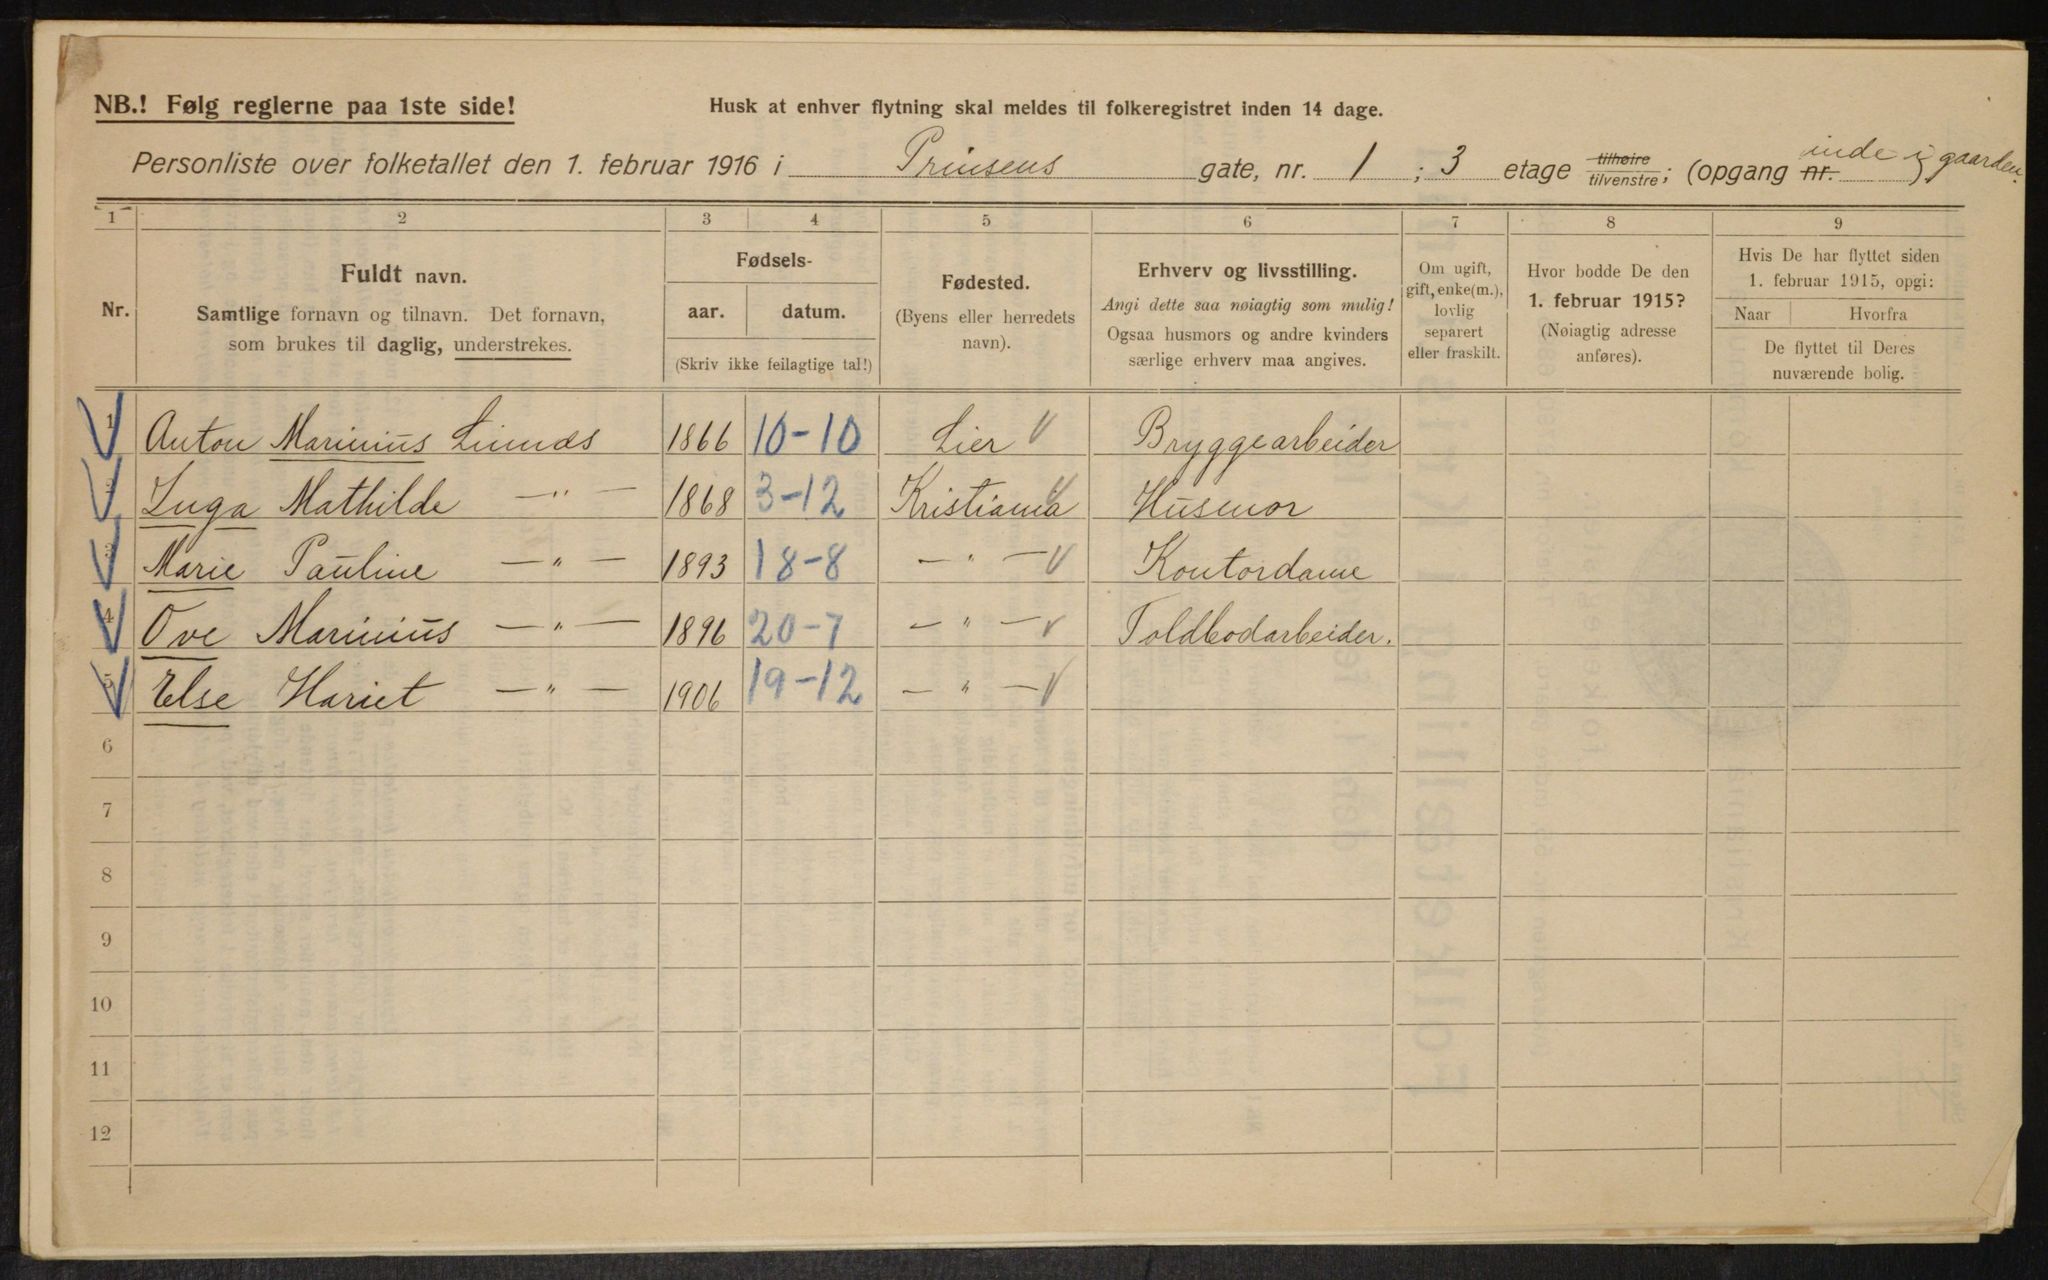 NB.! Følg reglerne paa 1ste side!
Husk at enhver flytning skal meldes til folkeregistret inden 14 dage.
Personliste over folketallet den 1. februar 1916 i Prinsens gate, nr. 1 ; 3 etage tilhøire tilvenstre; (opgang nr. inde i) gaarden.
1 2 3 4 5 6 7 8 9
Nr.
Fuldt navn.
Samtlige fornavn og tilnavn. Det fornavn,
som brukes til daglig, understrekes.
Fødsels-
aar. datum.
(Skriv ikke feilagtige tal!)
Fødested.
(Byens eller herredets
navn).
Erhverv og livsstilling.
Angi dette saa nøiagtig som mulig!
Ogsaa husmors og andre kvinders
særlige erhverv maa angives.
Om ugift,
gift, enke(m.),
lovlig
separert
eller fraskilt.
Hvor bodde De den
1. februar 1915?
(Nøiagtig adresse
anføres).
Hvis De har flyttet siden
1. februar 1915, opgi:
Naar Hvorfra
De flyttet til Deres
nuværende bolig.
1 Anton Marinius 1866 10-10 Lier Bryggearbeider
2 Inga Mathilde —"— 1868 3-12 Kristiania Husmor
3 Marie Pauline —"— 1893 18-8 —"— Kontordame
4 Ove Marinius —"— 1896 20-7 —"— Toldbodarbeider.
5 Else Hariet —"— 1906 19-12 —"—
6
7
8
9
10
11
12